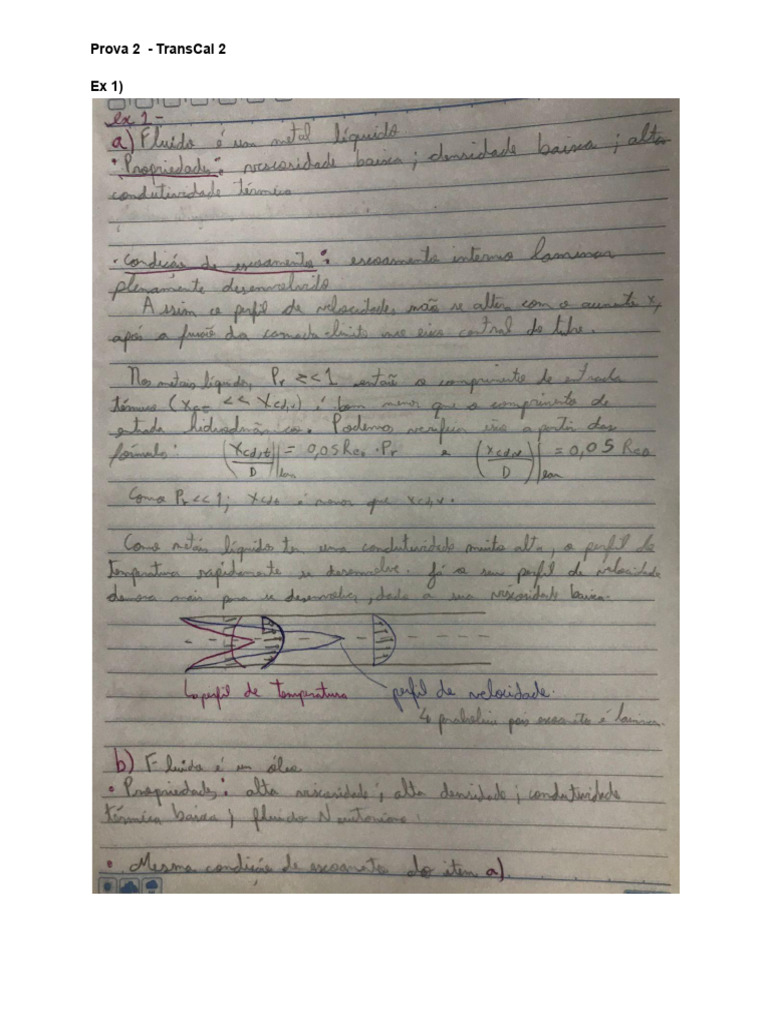 Prova 2 - TransCal 2
Ex 1)
ex 1-
a) Fluido é um metal líquido
• Propriedades: viscosidade baixa; densidade baixa; alta
condutividade térmica
• Condição de escoamento: escoamento interno laminar
plenamente desenvolvido
Assim o perfil de velocidades não se altera com o aumento x,
após a fusão da camada limite no eixo central do tubo.
Nos metais líquidos, Pr <<1 então o comprimento de entrada
térmico ( << xcd,v) é bem menor que o comprimento de
entrada hidrodinâmico. Podemos verificar isso a partir das
fórmulas: (xcd,t/D)|lam = 0,05 ReD · Pr e (xcd,v/D)|lam = 0,05 ReD
Como Pr <<1; xcd,t é menor que xcd,v.
Como metais líquidos tem uma condutividade muito alta, o perfil de
temperatura rapidamente se desenvolve. Já o seu perfil de velocidade
demora mais para se desenvolver, dada a sua viscosidade baixa.
perfil de temperatura
perfil de velocidade.
pois escoamento é laminar.
b) Fluido é um óleo
• Propriedades: alta viscosidade; alta densidade; condutividade
térmica baixa; fluido Newtoniano.
• Mesma condição de escoamento do item a).